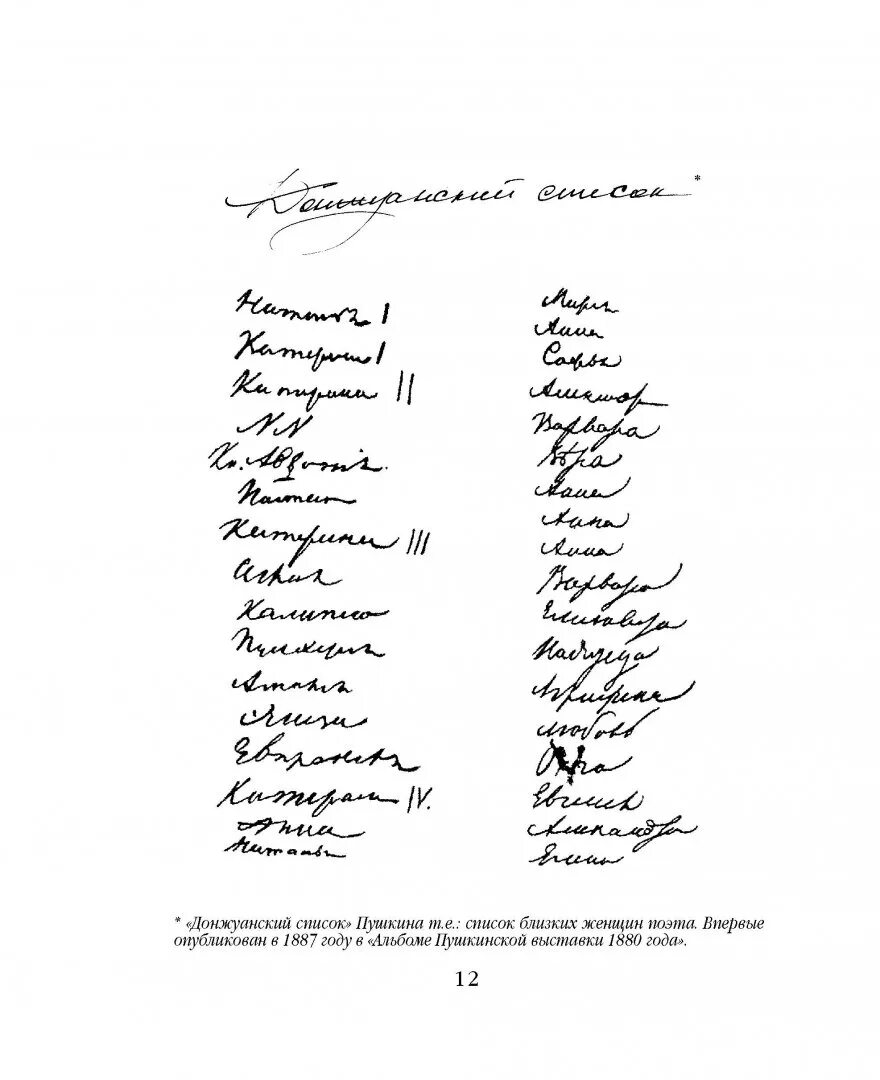 Донжуанский список*
Наталья I
Катерина I
Катерина II
NN
Кн. Авдотия
Настасья
Катерина III
Аглая
Калипсо
Пульхерия
Амалия
Элиза
Евпраксея
Катерина IV.
Анна
Наталья
Мария
Анна
Софья
Александра
Варвара
Вера
Анна
Анна
Анна
Варвара
Елизавета
Надежда
Аграфена
Любовь
Ольга
Евгения
Александра
Елена
* «Донжуанский список» Пушкина т.е.: список близких женщин поэта. Впервые
опубликован в 1887 году в «Альбоме Пушкинской выставки 1880 года».
12